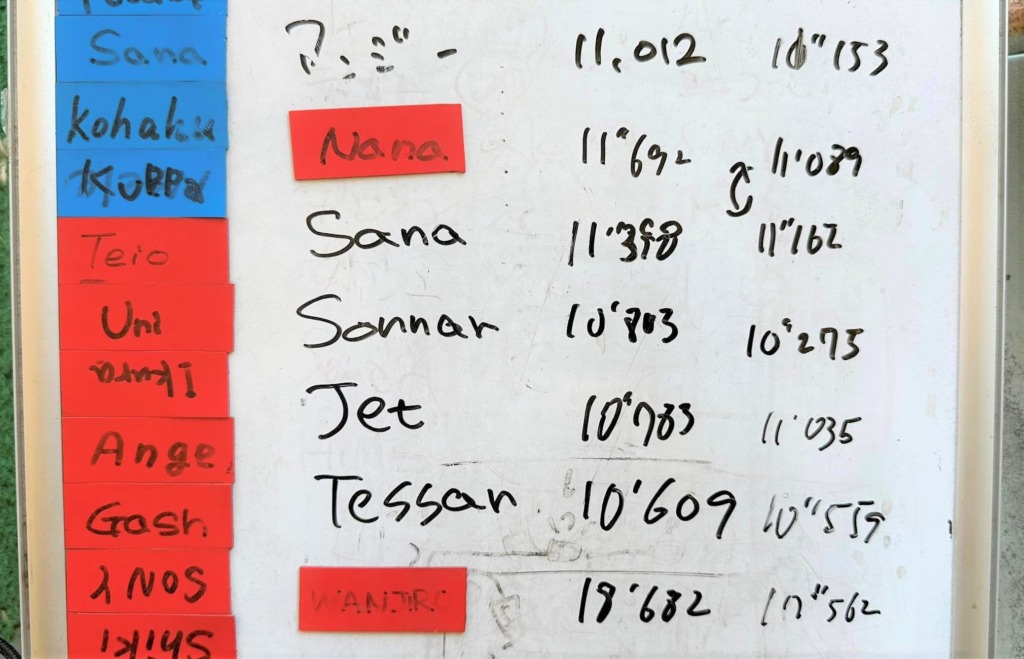 Sana
Kohaku
KUPPA
Teio
Uni
Ikura
Ange
Gash
SONY
Shiki
アンジー 11,012 10"153
Nana 11"692 11'089
Sana 11"162
Sonnar 10'803 10"275
Jet 10"783 11'035
Tessar 10'609 10"559
WANJIRO 18'682 17"562